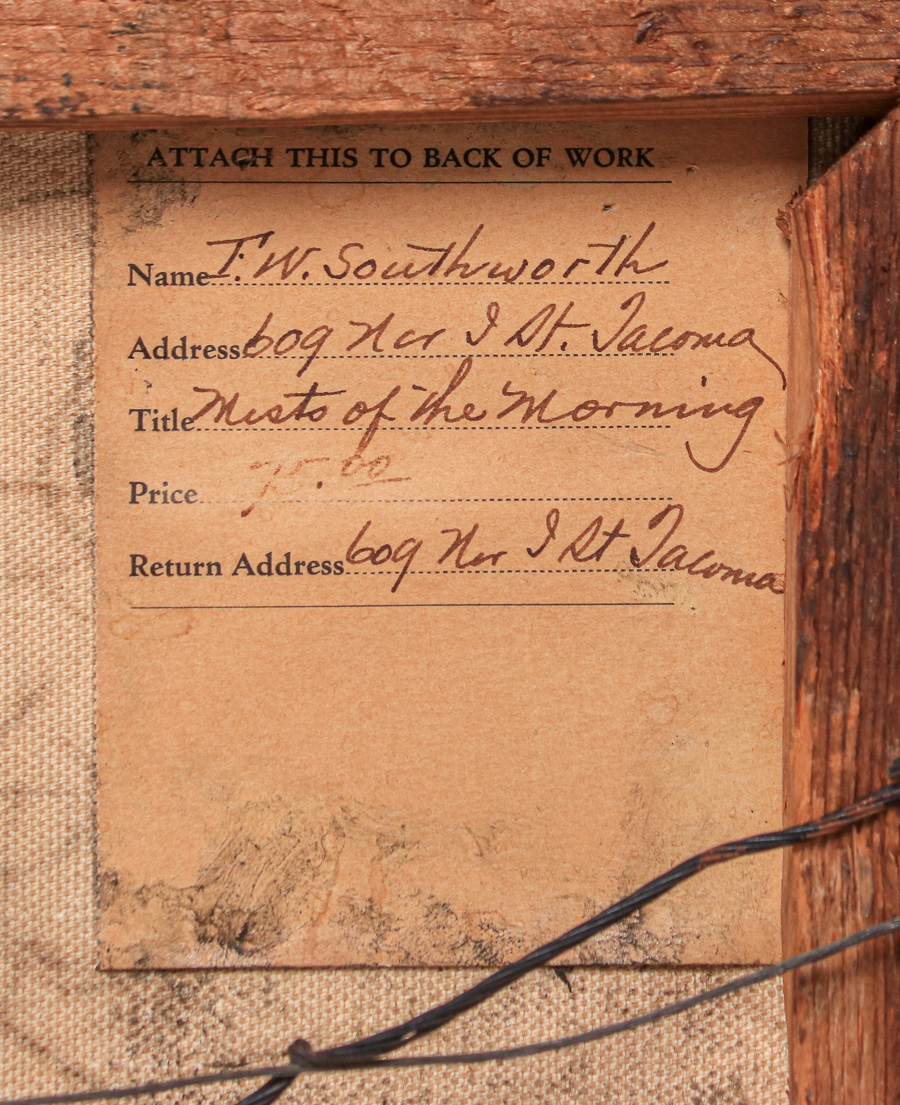 ATTACH THIS TO BACK OF WORK
Name T. W. Southworth
Address 609 Nor I St. Tacoma
Title Mists of the Morning
Price 75.00
Return Address 609 Nor I St Tacoma